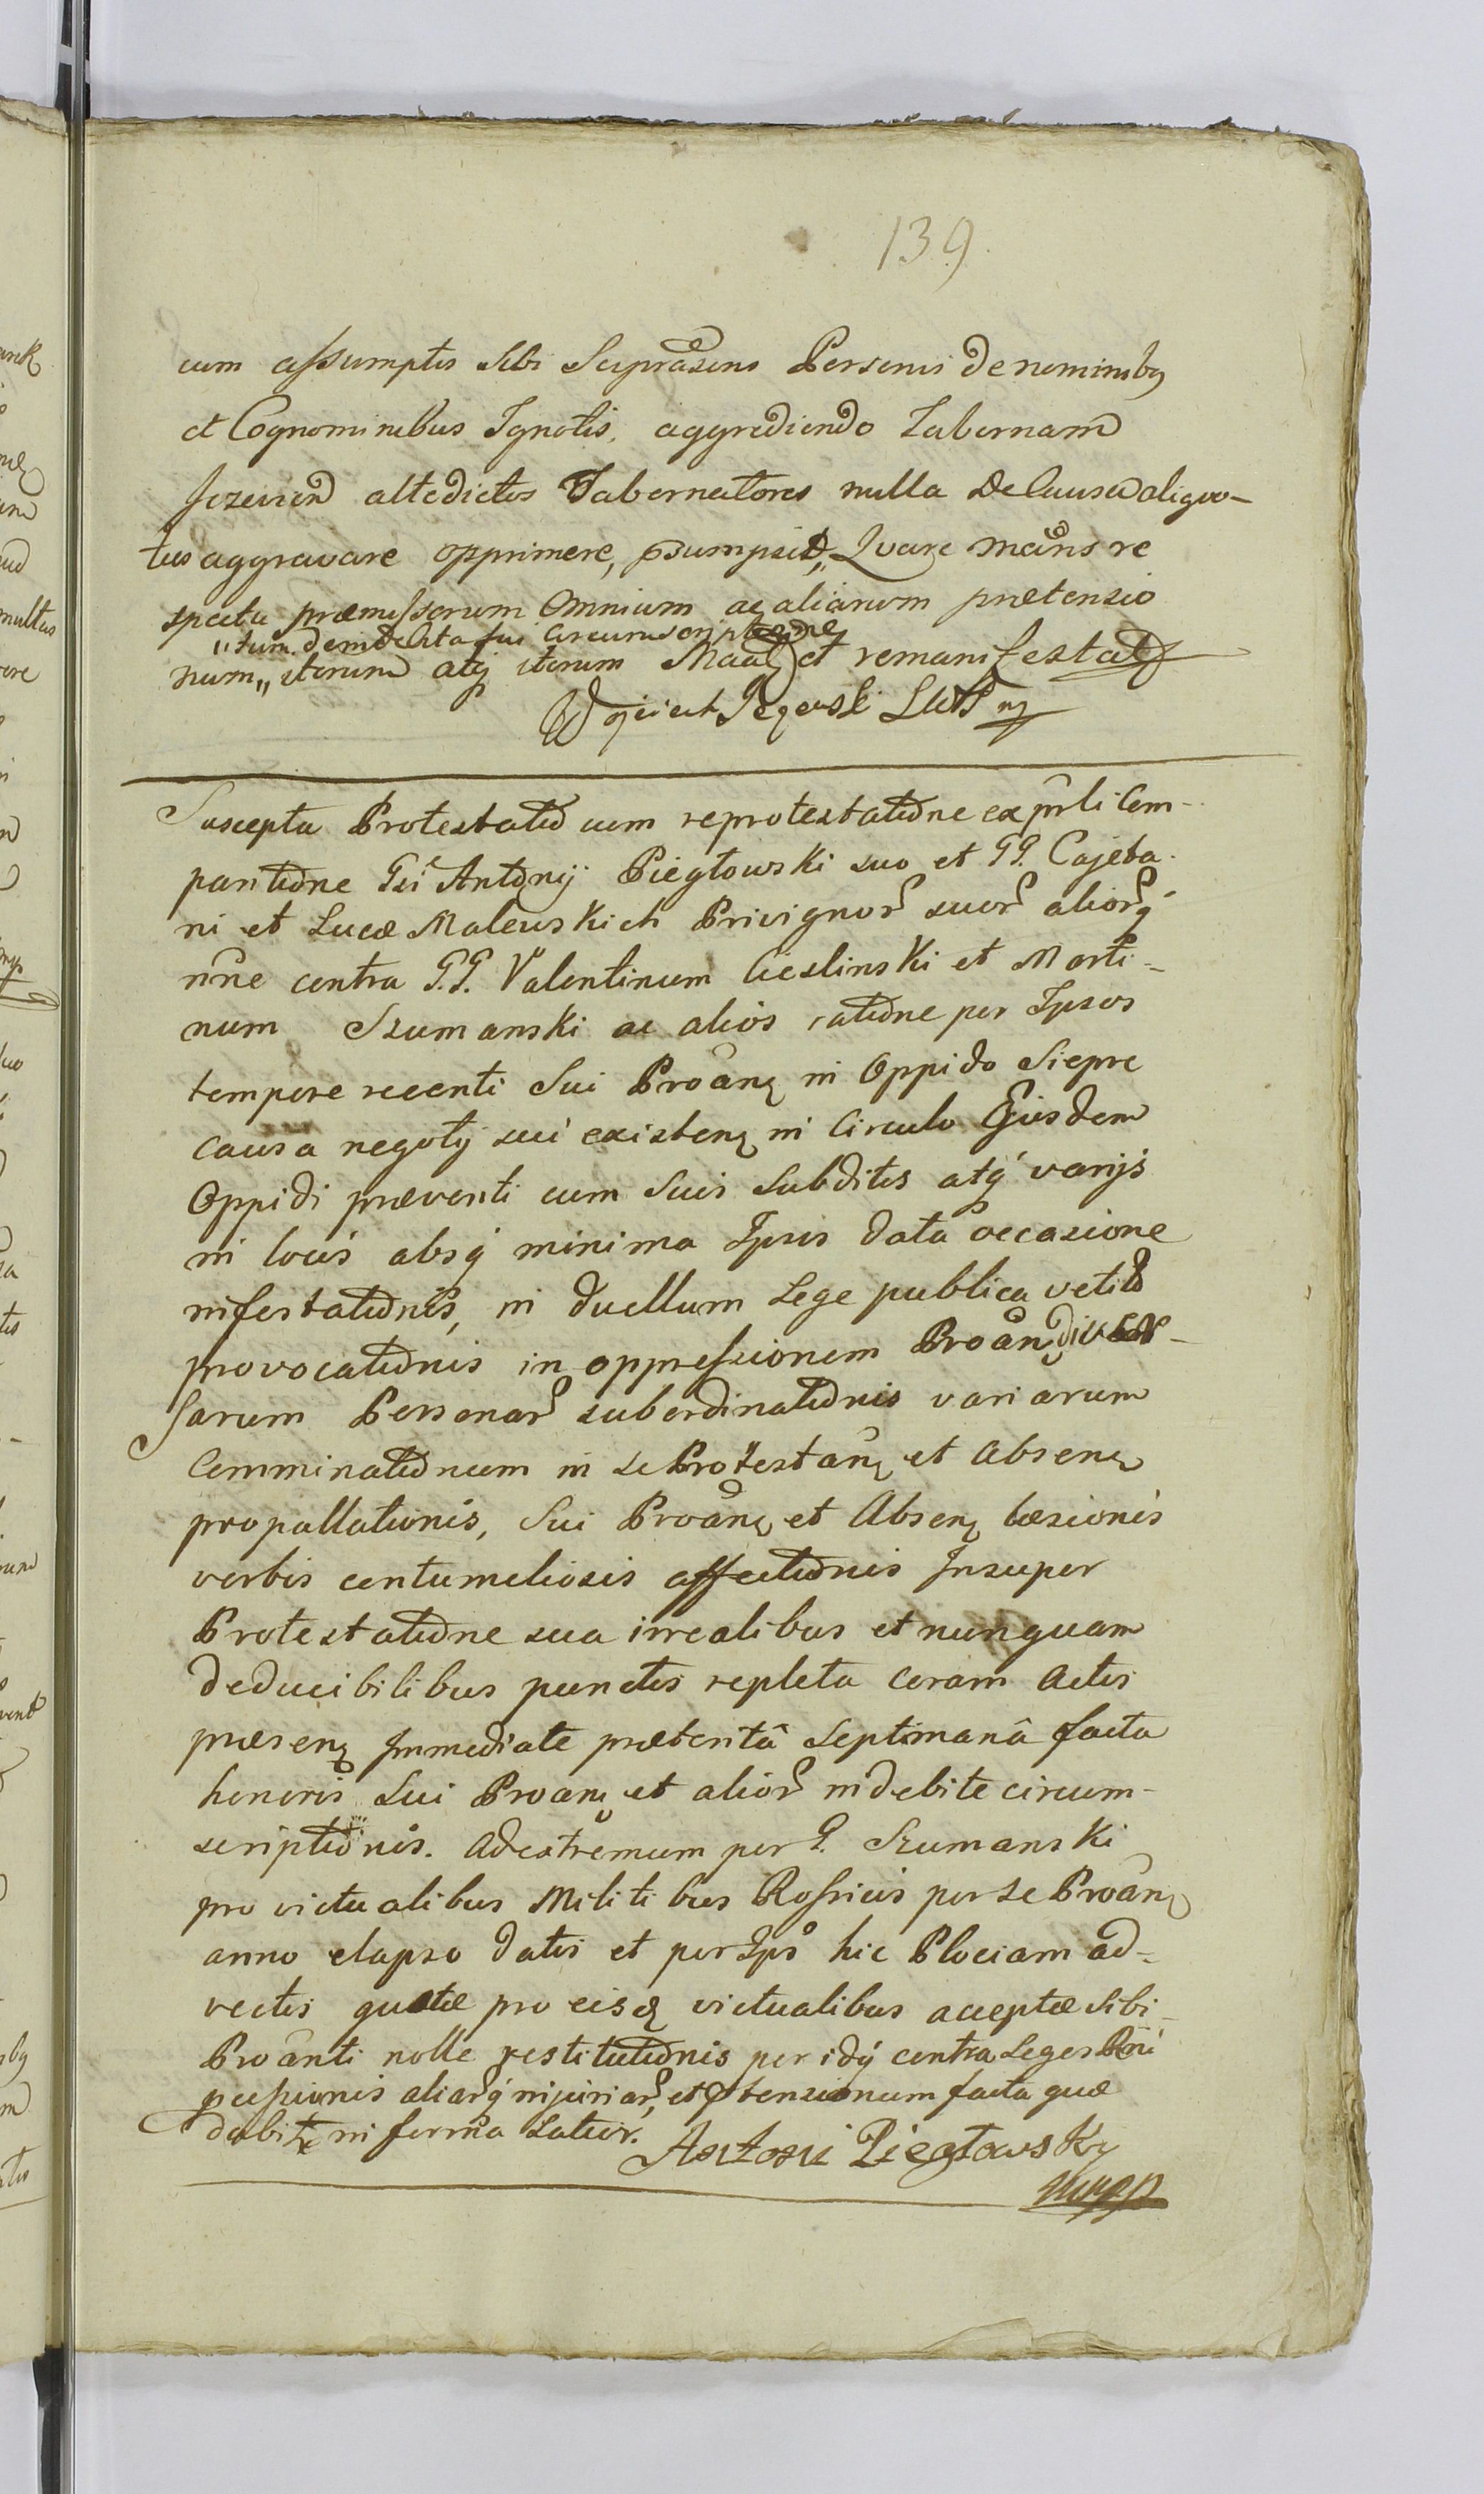 139.
cum assumptis sibi Supraessens Personis de nominibq
et Cognominibus Ignotis, aggrediendo Tabernam
altedictos Tabernatores nulla de Causa aliquo-
ties aggravare opprimere, pṡumpsit, Quare mâns re
spectu præmissorum Omnium ac aliarum prætensio
"tum de indebita sui Circumscriptione
num,, iterum atq iterum et remanifestat
Woyciech
Suscepta Protestatio cum reprotestatione ex pñli Com-
paritione Gsi Antonij Piegłowski suo et GG. Cajeta-
ni et Lucæ Malewskich Privignor suor alior q́
nñe contra G.G. Valentinum Cieslinski et Marti-
num Szumanski ac alios ratione per Ipsos
tempore recenti Sui Proanŧ in Oppido Siepre
causa negotij sui existenŧ in Circulo Ejusdem
Oppidi præventi cum Suis Subditis atq́ varijs
in locis absq́ minima Ipsis data occasione
infestationis, in duellum Lege publica vetito
provocationis in oppressionem Proanŧ diver-
sarum Personar subordinationis variarum
Comminationum in se Protestanŧ et Absenŧ
propallationis, Sui Proanŧ et Absenŧ læsionis
verbis contumeliosis affectionis Insuper
Protestatione sua irrealibus et nunquam
deducibilibus punctis repleta coram Actis
præsenŧ Immediate præteritâ Septimanâ facta
honoris Sui Proanŧ et alior indebite circum-
scriptionis. Ad extremum per G. Szumanski
pro victualibus Militibus Rossicis per se Proanŧ
anno elapso datis et per Ipś hic Plociam ad-
vectis quotæ pro eisd victualibus acceptæ Sibi
Proânti nolle restitutionis per idq́ contra Leges Rñi
peccssionis aliar q́ injuriar, et ptensionum facta quæ
dabitr in forma Latior.
Antoni Piegłowsky
mpp